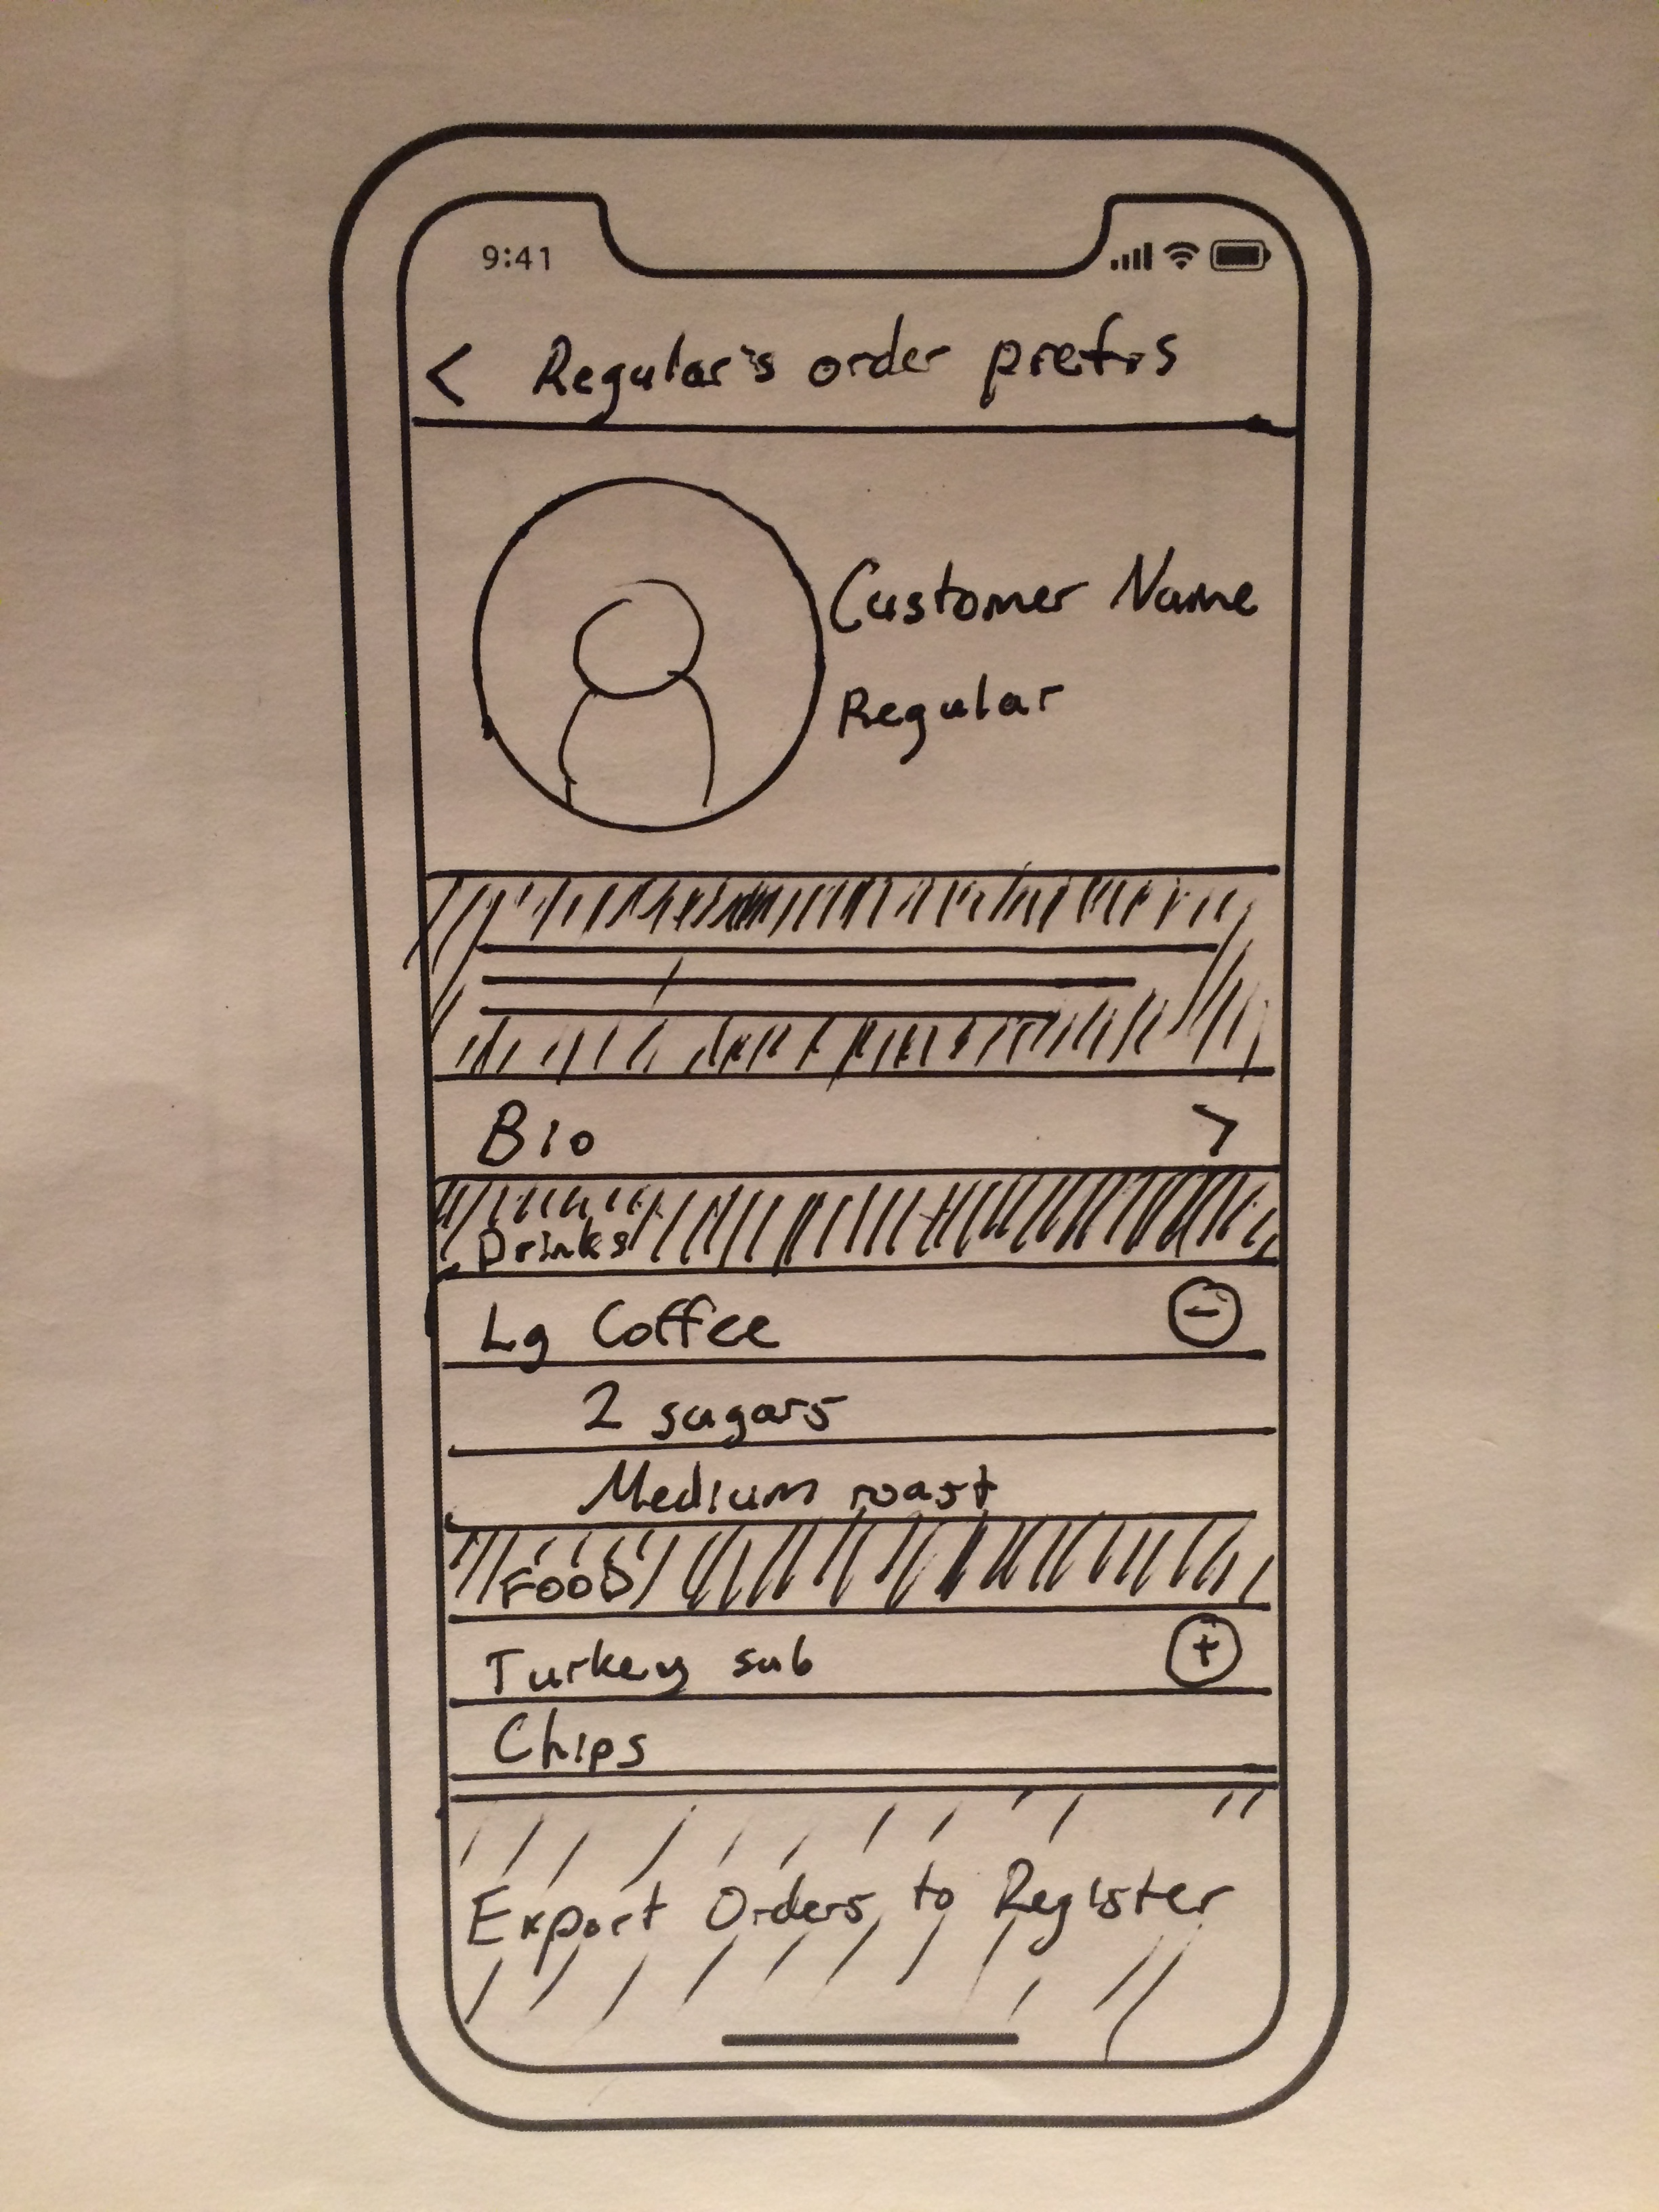 9:41
< Regular's order prefrs
Customer Name
Regular
Bio >
Drinks
Lg Coffee -
2 sugars
Medium roast
FOOD
Turkey sub +
Chips
Export Orders to Register